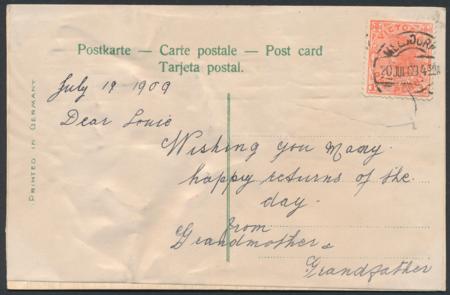 Postkarte — Carte postale — Post card
Tarjeta postal.
VICTORIA
MELBOURNE
20 JUL 09 4 30A
July 19 1909
Dear Louie
Wishing you Many
happy returns of the
day.
from
Grandmother &
Grandfather
PRINTED IN GERMANY